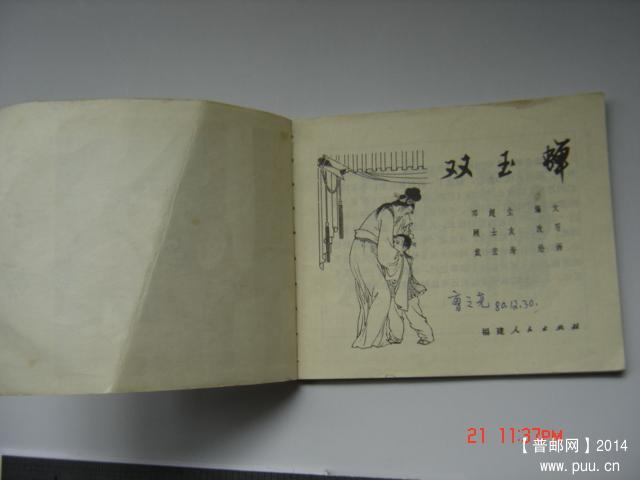 双玉蝉
编文
顾士友 改写
绘画
80.12.30.
福建人民出版社
21 11:37PM
【普邮网】2014
www.puu.cn